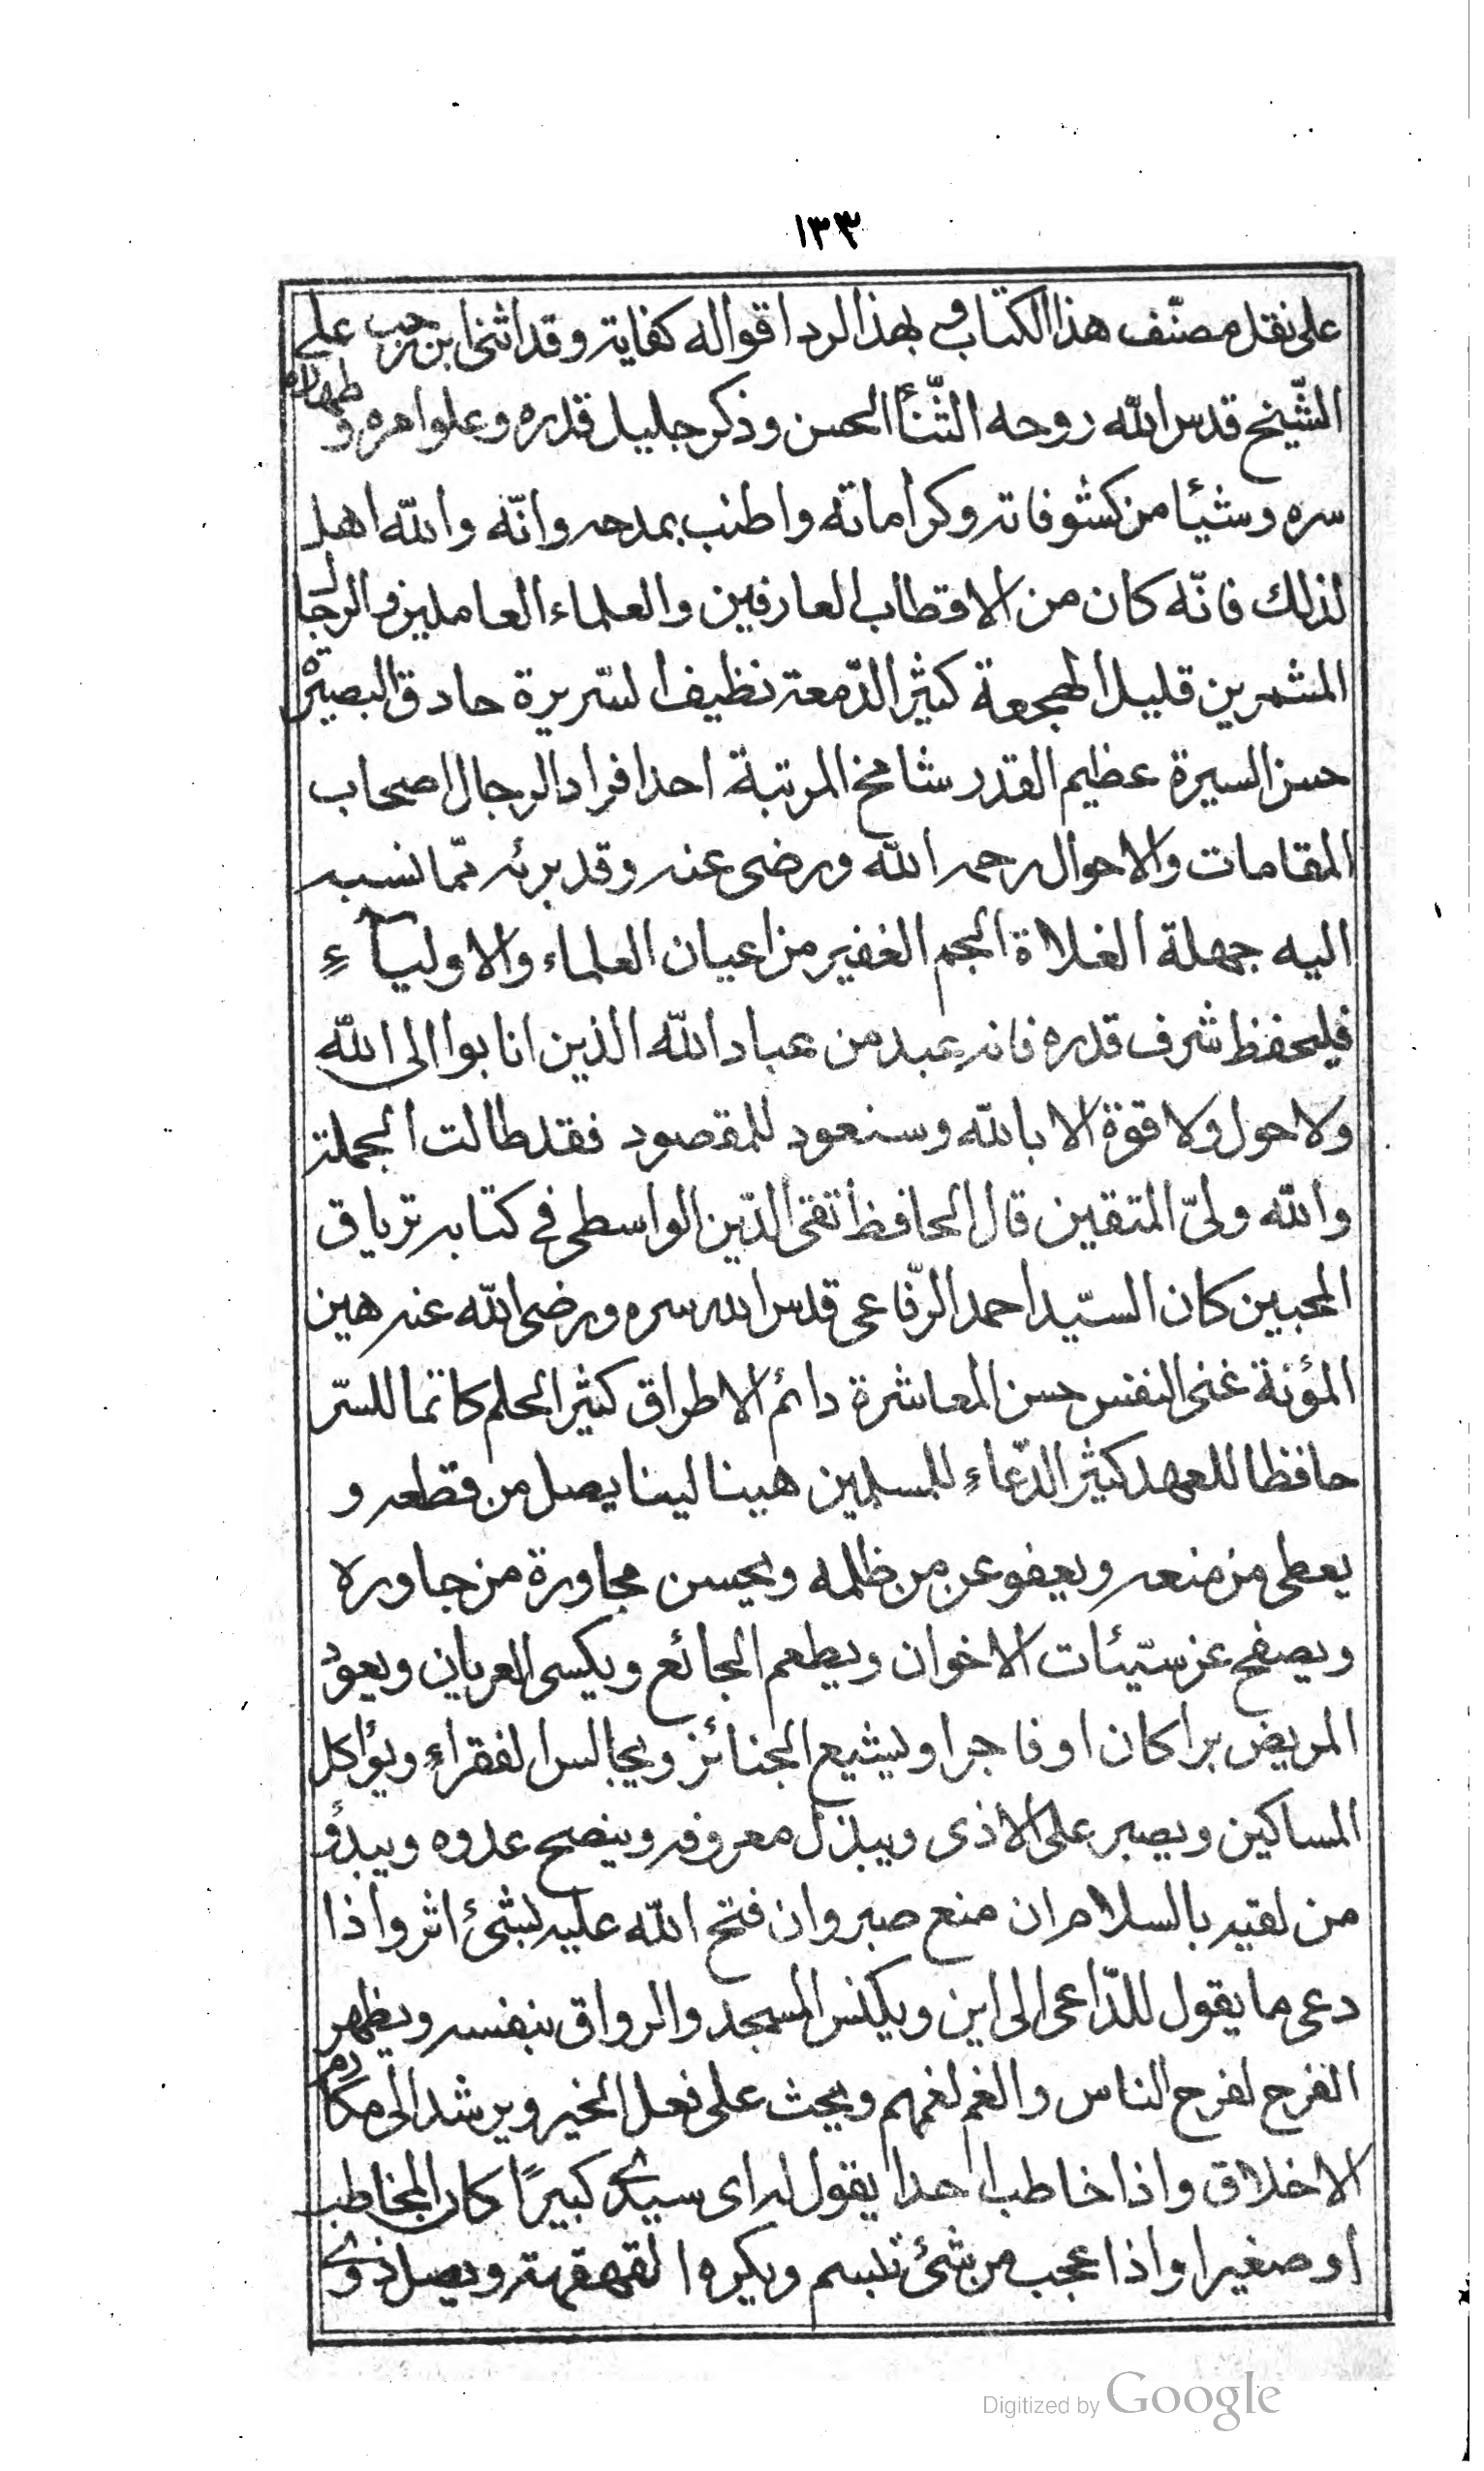 ١٣٣
على نقل مصنّف هذا الكتاب وفى بهذا الرد اقواله كفاية وقد اثنى ابن رجب على
الشّيخ قدس اللّه روحه الثّنأ الحسن وذكر جليل قدره وعلو امره و طهارة
سره وشيئا من كشوفاته وكراماته واطنب بمدحه وانّه واللّه اهل
لذلك فانّه كان من الاقطاب العارفين والعلماء العاملين والرجال
المشمرين قليل الهجعة كثير الدّمعة نظيف السّريرة حاذق البصيرة
حسن السيرة عظيم القدر شامخ المرتبة احد افراد الرجال اصحاب
المقامات والاحوال رحمه اللّه ورضى عنه وقد برئه ممّا نسبه
اليه جهلة الغلاة الجم الغفير من اعيان العلماء والاولياءِ
فليحفظ شرف قدره فانه عبد من عباد اللّه الذين انابوا الى اللّه
ولا حول ولا قوة الا باللّه وسنعود للمقصود فقد طالت الجملة
واللّه ولىّ المتقين قال الحافظ تقى الدّين الواسطى فى كتابه ترياق
المحبين كان السيّد احمد الرّفاعى قدس الله سره ورضى اللّه عنه هين
المؤنة غنى النفس حسن المعاشرة دائم الاطراق كثير الحلم كاتما للسّر
حافظا للعهد كثير الدّعاءِ للمسلمين هينا لينا يصل من قطعه و
يعطى من منعه ويعفو عن من ظلمه ويحسن مجاورة من جاوره
ويصفح عن سيّئات الاخوان ويطعم الجائع ويكسى العريان ويعود
المريض برا كان او فاجرا ويشيع الجنائز ويجالس الفقراءِ ويؤاكل
المساكين ويصبر على الاذى ويبذل معروفه وينصح عدوه ويبدؤ
من لقيه بالسلام ان منع صبر وان فتح اللّه عليه بشئ اثر واذا
دعى ما يقول للدّاعى الى اين ويكنس المسجد والرواق بنفسه ويظهر
الفرح لفرح الناس والغم لغمهم ويحث على فعل الخير ويرشد الى مكارم
الاخلاق واذا خاطب احدا يقول له اى سيدى كبيرًا كان المخاطب
او صغيرا واذا عجب من شئ تبسم ويكره القهقهة ويصل ذوى
Digitized by Google